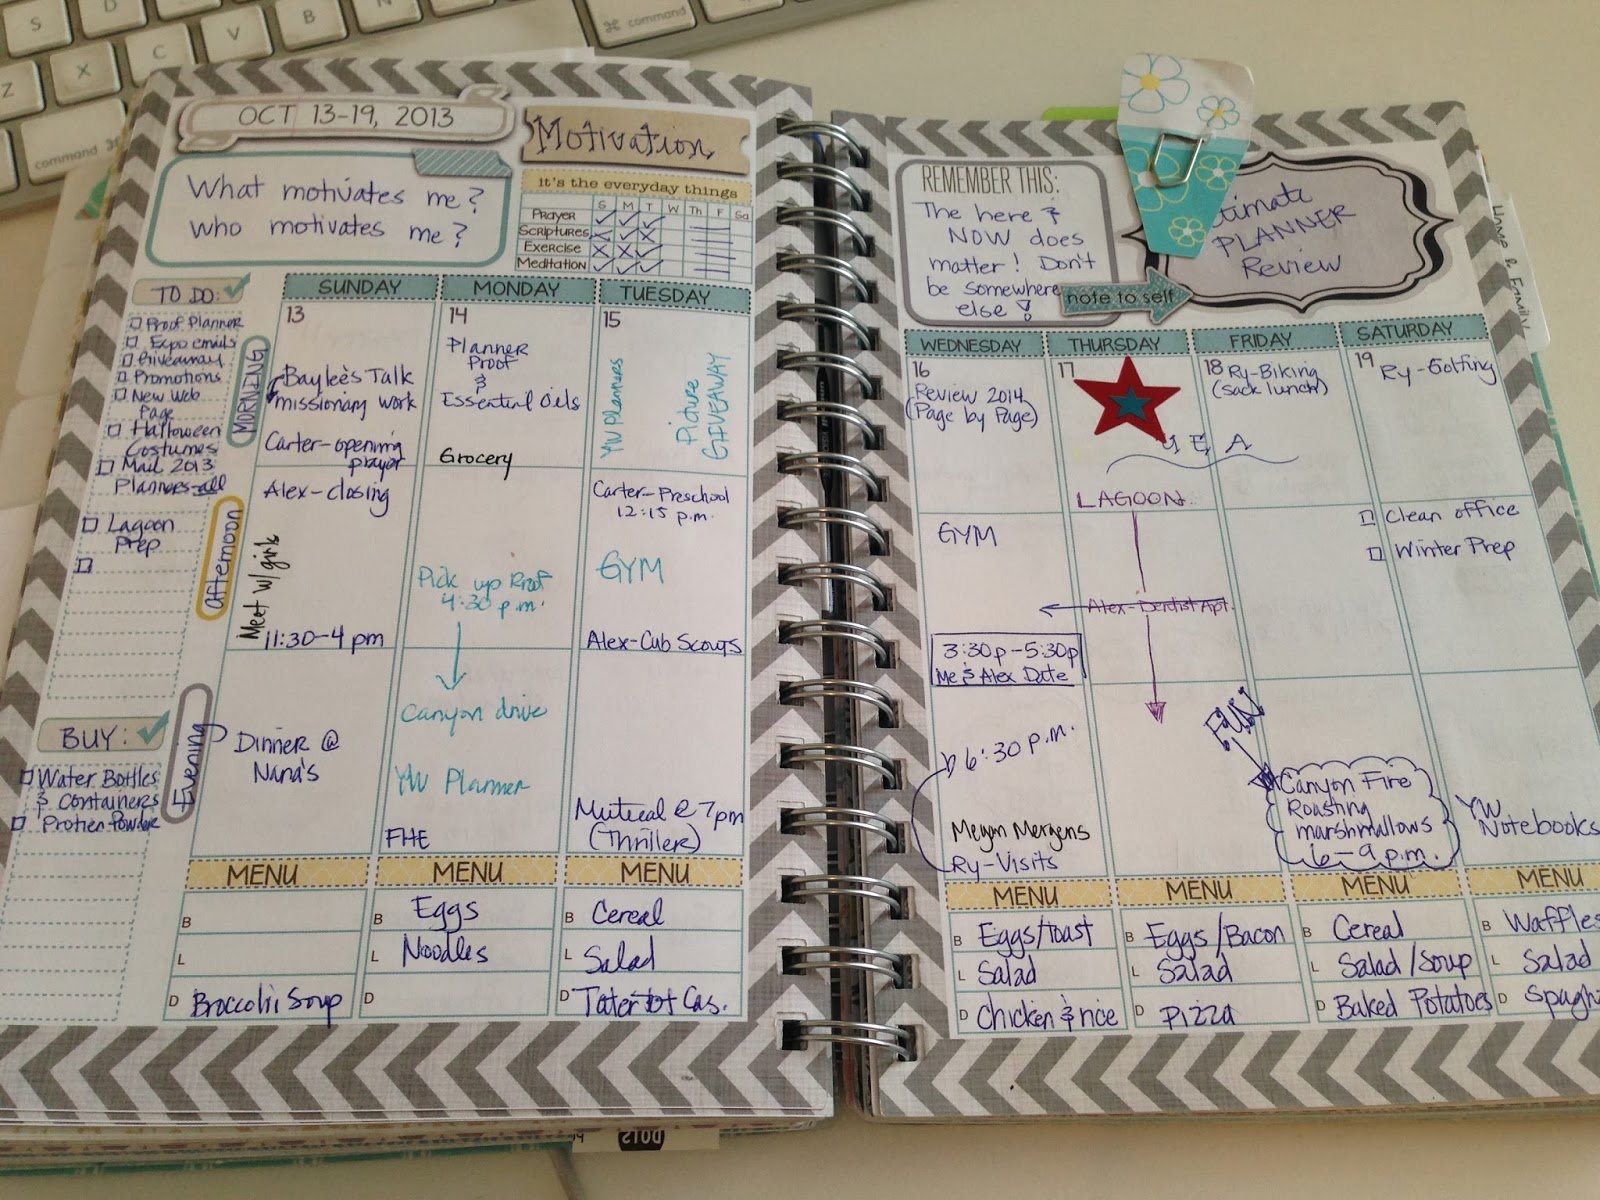 S
D
Z
X
C
V
B
N
command ⌘
⌘ command
OCT 13-19, 2013
Motivation
What motivates me?
Who motivates me?
it's the everyday things
S M T W Th F Sa
Prayer
Scriptures
Exercise
Meditation
TO DO:
Proof Planner
Expo emails
Giveaway
Promotions
New Web
Page
Halloween
Costumes
Mail 2013
Planners-all
Lagoon
Prep
BUY:
Water Bottles
& Containers
Protien Powder
MORNING
afternoon
Evening
SUNDAY
13
Baylee's Talk
missionary work
Carter-opening
prayer
Alex-closing
Meet w/ girls
11:30-4 pm
Dinner @
Nana's
MENU
B
L
D Broccoli Soup
MONDAY
14
Planner
Proof
&
Essential Oils
Grocery
Pick up Proof
4:30 p.m.
Canyon drive
YW Planner
FHE
MENU
B Eggs
L Noodles
D
TUESDAY
15
YW Planners
Picture
GIVEAWAY
Carter-Preschool
12:15 p.m.
GYM
Alex-Cub Scouts
Mutual @ 7pm
(Thriller)
MENU
B Cereal
L Salad
D Tater tot Cas.
REMEMBER THIS:
The here &
NOW does
matter! Don't
be somewhere
else!
note to self
PLANNER
Review
Home & Family
WEDNESDAY
16
Review 2014
(Page by Page)
GYM
3:30p-5:30p
Me & Alex Date
6:30 p.m.
Megan Mergens
Ry-Visits
MENU
B Eggs/toast
L Salad
D Chicken & rice
THURSDAY
17
U E A
LAGOON
Alex-Dentist Apt.
MENU
B Eggs/Bacon
L Salad
D Pizza
FRIDAY
18 Ry-Biking
(sack lunch)
FUN
Canyon Fire
Roasting
marshmallows
6-9 p.m.
MENU
B Cereal
L Salad/Soup
D Baked Potatoes
SATURDAY
19 Ry-Golfing
Clean office
Winter Prep
YW
Notebooks
MENU
B Waffles
L Salad
D Spagh
DOTS